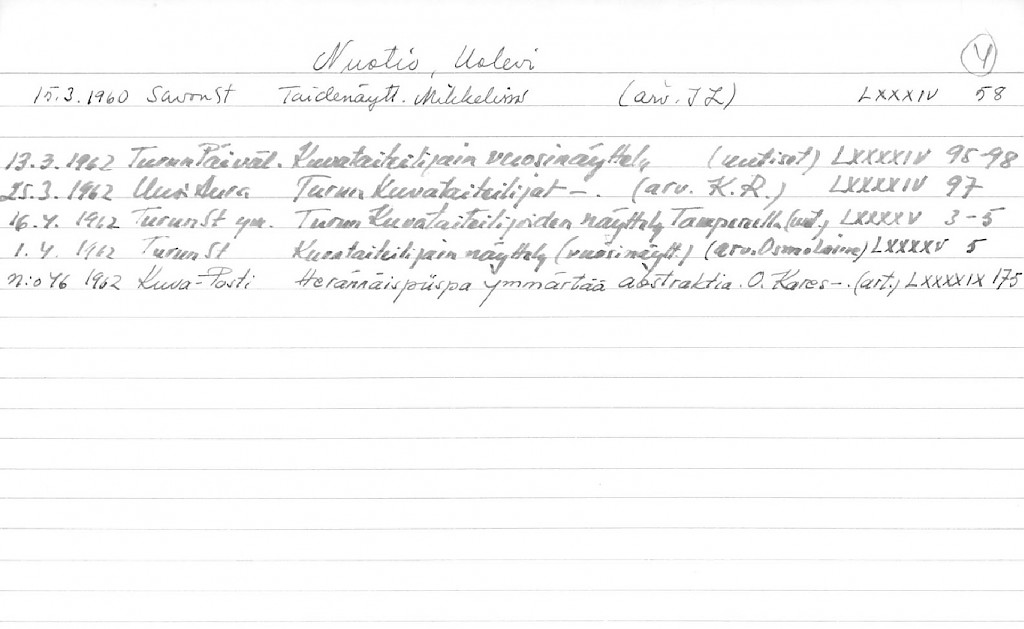 Nuotio, Uolevi 4
15.3.1960 SavonSt Taidenäytt. Mikkelissä (arv. J L) LXXXIV 58
13.3.1962 Turun Päiväl. Kuvataiteilijain vuosinäyttely (uutiset) LXXXXIV 95-98
25.3.1962 Uusi Aura Turun Kuvataiteilijat -. (arv. K.R.) LXXXXIV 97
16.4.1962 TurunSt ym. Turun Kuvataiteilijoiden näyttely Tampereella (uut.) LXXXXV 3-5
1.4.1962 TurunSt Kuvataiteilijain näyttely (vuosinäytt.) (arv. Osmo Laine) LXXXXV 5
n:o 46 1962 Kuva-Posti Herännäispiispa ymmärtää abstraktia. O. Kares -. (art.) LXXXXIX 175